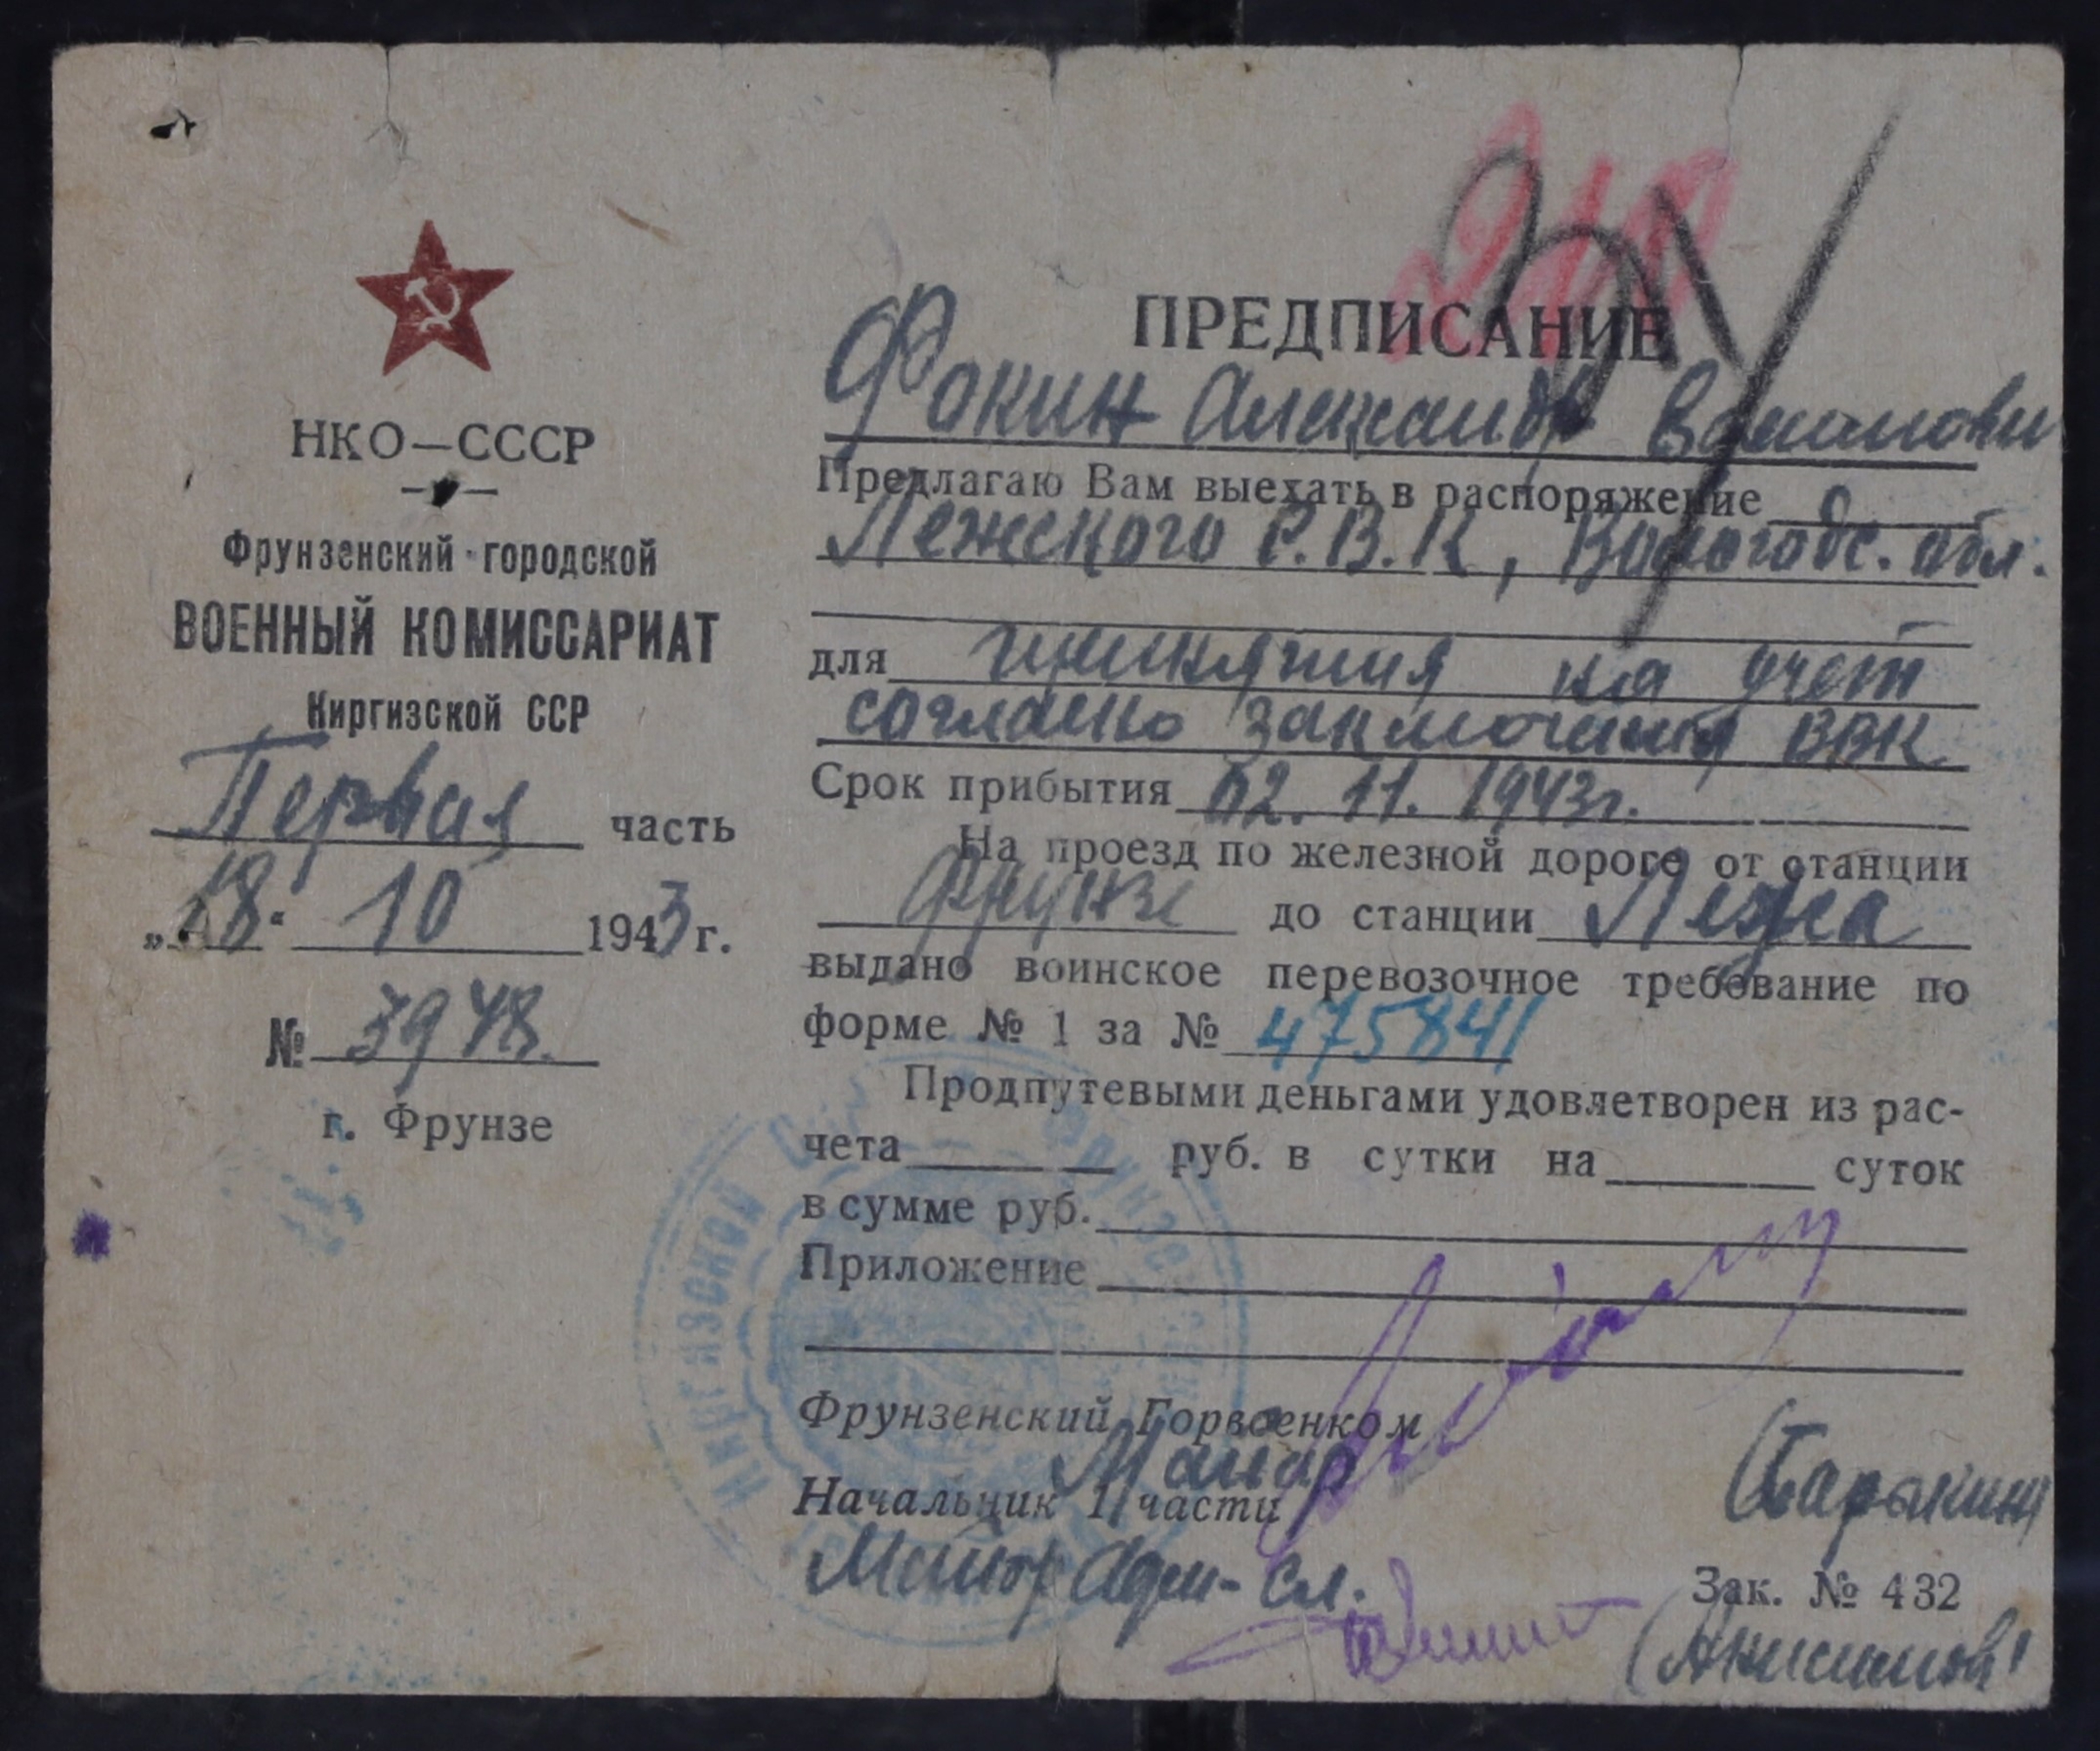 НКО—СССР
Фрунзенский городской
ВОЕННЫЙ КОМИССАРИАТ
Киргизской ССР
Первая часть
„18“ 10 1943 г.
№ 3948.
г. Фрунзе
ПРЕДПИСАНИЕ
Фокин Александр
Предлагаю Вам выехать в распоряжение
Лежского Р.В.К, Вологодс. обл.
для принятия на учет
согласно заключения ВВК
Срок прибытия 02.11.1943г.
На проезд по железной дороге от станции
Фрунзе до станции Лежа
выдано воинское перевозочное требование по
форме № 1 за № 475841
Продпутевыми деньгами удовлетворен из рас-
чета руб. в сутки на суток
в сумме руб.
Приложение
Фрунзенский Горвоенком
Майор
Начальник 1 части
Майор Адм-сл.
Зак. № 432
(Анисимов)
Киргизской